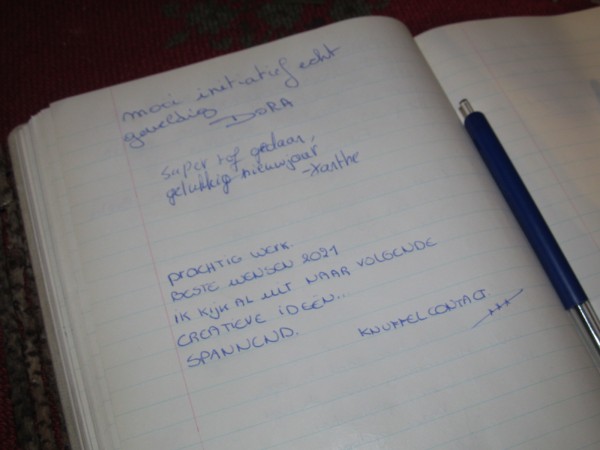 mooi initiatief echt
geweldig
DORA
super tof gedaan,
gelukkig nieuwjaar
-Xanthe
PRACHTIG WERK.
BESTE WENSEN 2021
IK KIJK AL UIT NAAR VOLGENDE
CREATIEVE IDEEN...
SPANNEND.
KNUFFELCONTACT
xxx